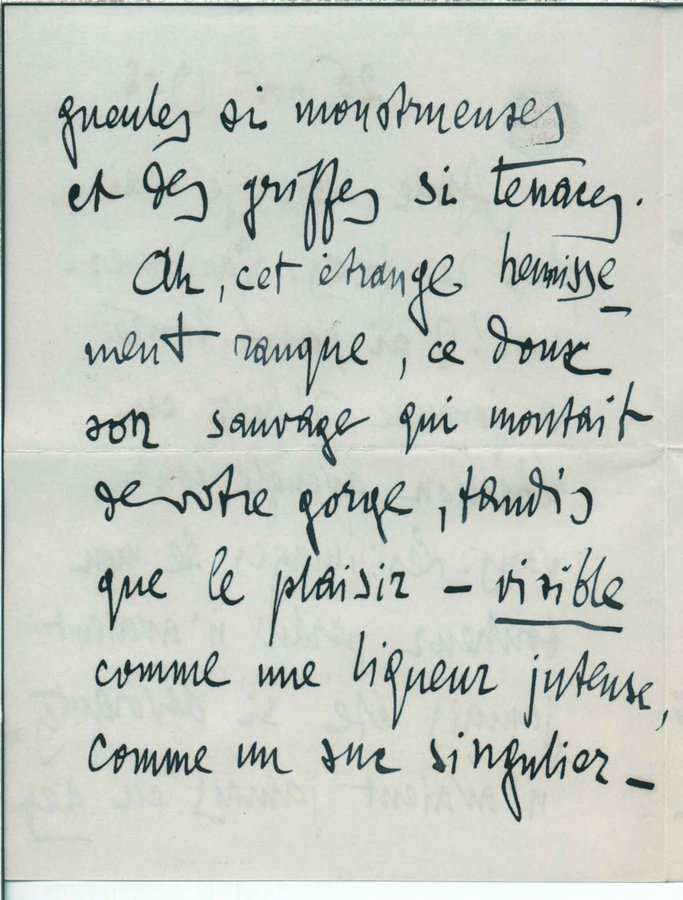 gueules si monstrueuses
et des griffes si tenaces.
Ah, cet étrange hennisse
ment rauque, ce doux
son sauvage qui montait
de votre gorge, tandis
que le plaisir – visible
comme une liqueur intense,
comme un suc singulier –